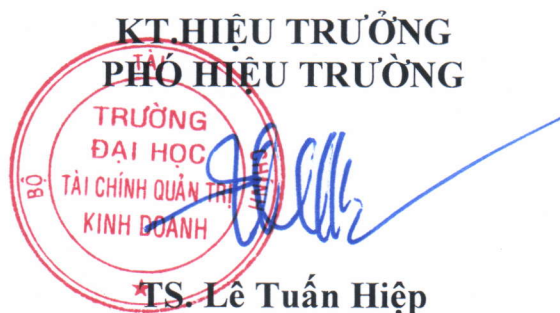 KT.HIỆU TRƯỞNG
PHÓ HIỆU TRƯỜNG
BỘ TÀI CHÍNH
TRƯỜNG
ĐẠI HỌC
TÀI CHÍNH QUẢN TRỊ
KINH DOANH
TS. Lê Tuấn Hiệp